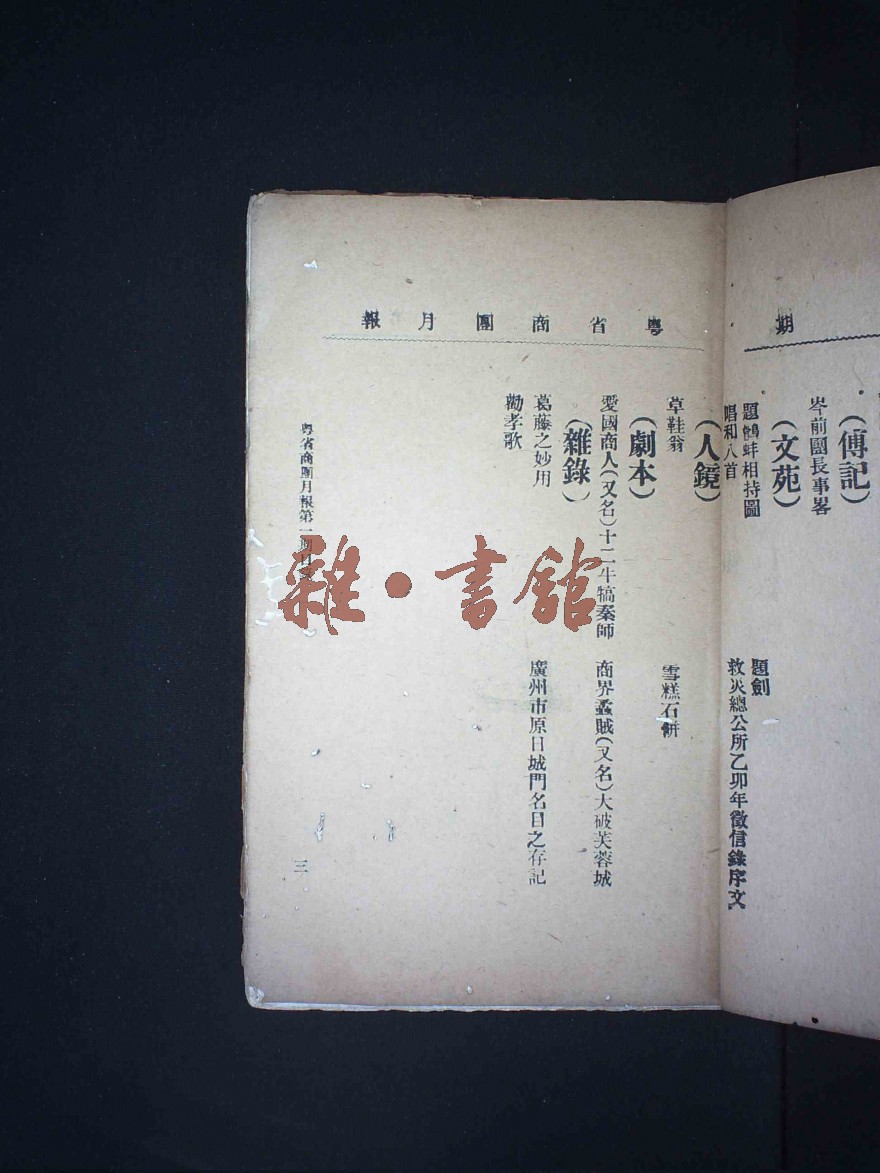 期
(傳記)
岑前團長事畧
(文苑)
題鷸蚌相持圖
題劍
唱和八首
救災總公所乙卯年徵信錄序文
粵省商團月報
(人鏡)
草鞋翁
雪糕石餅
(劇本)
愛國商人(又名)十二牛犒秦師
商界蟊賊(又名)大破芙蓉城
(雜錄)
葛藤之妙用
廣州市原日城門名目之存記
勸孝歌
粵省商團月報第一期目
三
雜·書館